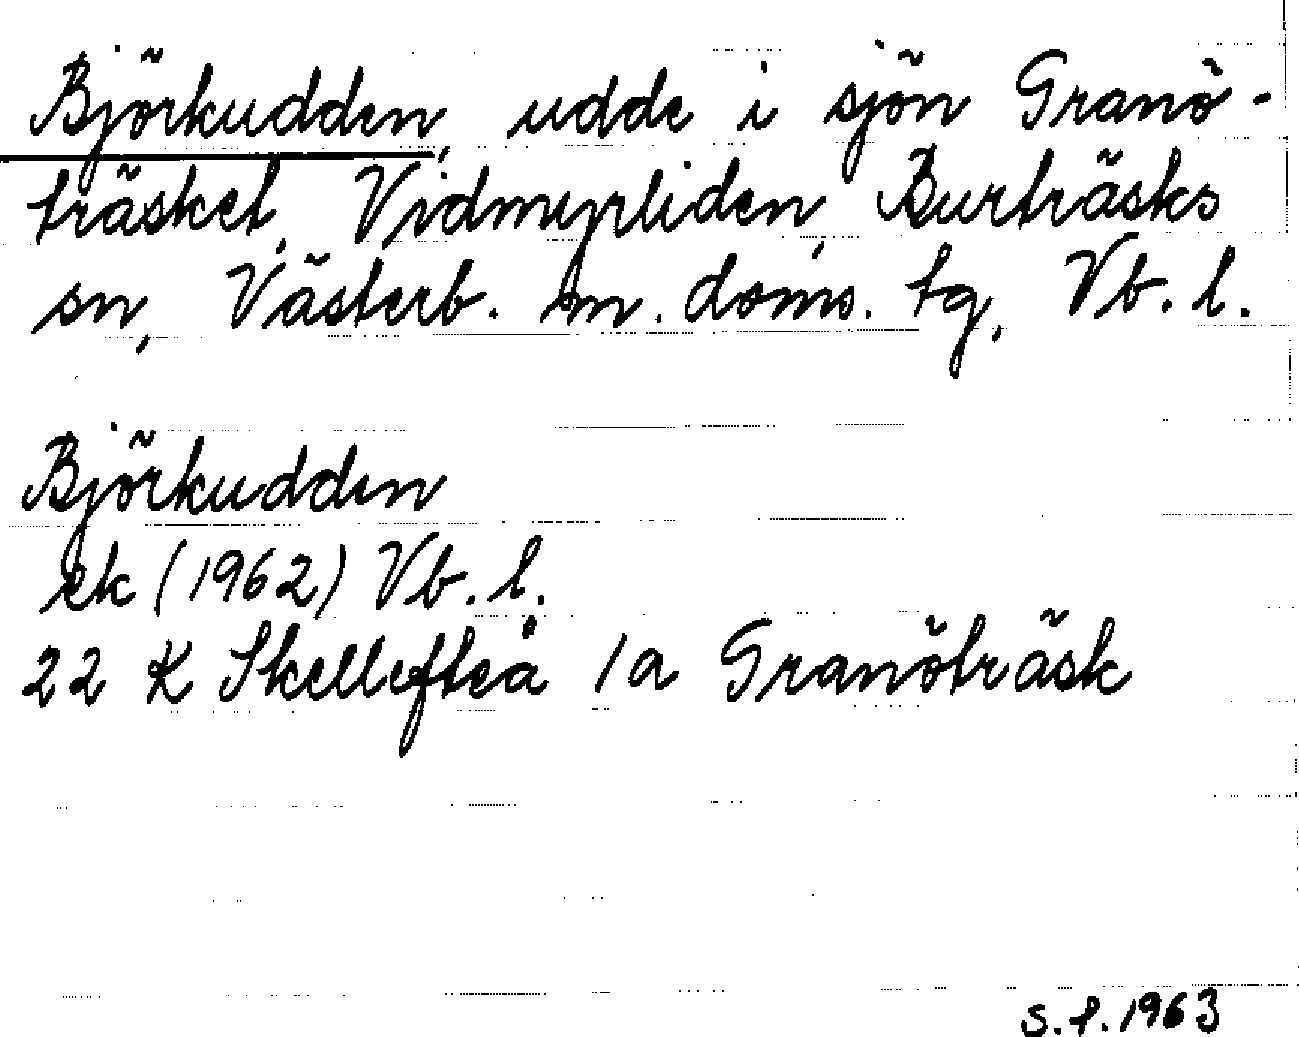 Björkudden, udde i sjön Granö-
träsket, Vidmyrliden, Burträsks
sn, Västerb. m. doms. tg, Vb. l.
Björkudden
ek (1962) Vb. l.
22 K Skellefteå 1a Granöträsk
S. f. 1963